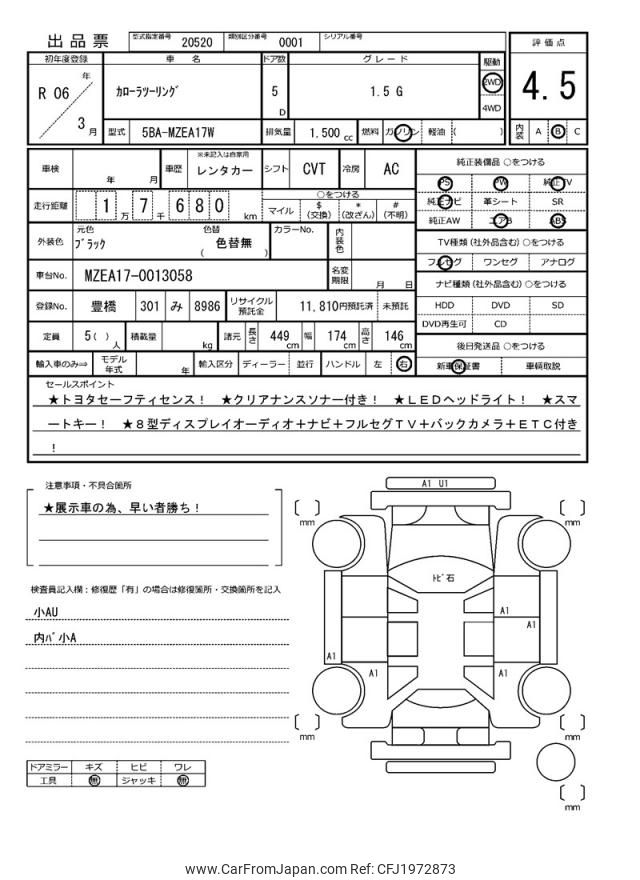 出品票 型式指定番号 20520 類別区分番号 0001 シリアル番号
評価点
4.5
内装 A B C
初年度登録 車名 ドア数 グレード 駆動
R 06 年 3 月
カローラツーリング 5 D 1.5 G 2WD 4WD
型式 5BA-MZEA17W 排気量 1.500 cc 燃料 ガソリン 軽油 ( )
車検 年 月 車歴 ※未記入は自家用 レンタカー シフト CVT 冷房 AC
走行距離 1 万 7 千 6 8 0 km
○をつける
マイル $ (交換) * (改ざん) # (不明)
外装色 元色 ブラック 色替 ( 色替無 ) カラーNo. 内装色
車台No. MZEA17-0013058 名変期限 月 日
登録No. 豊橋 301 み 8986 リサイクル預託金 11,810円預託済 未預託
定員 5( ) 人 積載量 kg 諸元 長さ 449 cm 幅 174 cm 高さ 146 cm
輸入車のみ⇒ モデル年式 年 輸入区分 ディーラー 並行 ハンドル 左 右
純正装備品 ○をつける
PS PW 純正TV
純正ナビ 革シート SR
純正AW エアB ABS
TV種類 (社外品含む) ○をつける
フルセグ ワンセグ アナログ
ナビ種類 (社外品含む) ○をつける
HDD DVD SD
DVD再生可 CD
後日発送品 ○をつける
新車保証書 車輌取説
セールスポイント
★トヨタセーフティセンス! ★クリアナンスソナー付き! ★LEDヘッドライト! ★スマ
ートキー! ★8型ディスプレイオーディオ+ナビ+フルセグTV+バックカメラ+ETC付き
!
注意事項・不具合箇所
★展示車の為、早い者勝ち!
検査員記入欄:修復歴「有」の場合は修復箇所・交換箇所を記入
小AU
内バ小A
ドアミラー キズ ヒビ ワレ
工具 無 ジャッキ 無
A1 U1
mm
mm
トビ石
A1
A1
A1
A1
A1
mm
mm
mm
www.CarFromJapan.com Ref: CFJ1972873